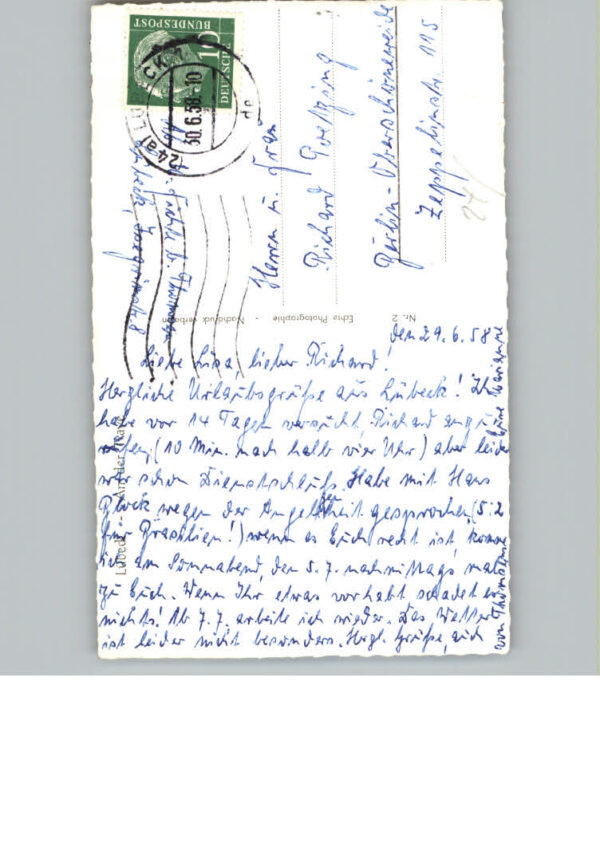 DEUTSCHE
BUNDESPOST
10
(24a) LÜBECK
30.6.58.-10
de
Herrn u. Frau
Richard
Berlin-Oberschöneweide
Zeppelinstr. 115
Lübeck,
Nr. 2 Echte Photographie - Nachdruck verboten
Lübeck - An der Trave
den 29.6.58
Liebe Luisa, lieber Richard!
Herzliche Urlaubsgrüße aus Lübeck! Ich
habe vor 14 Tagen versucht, Richard anzu-
rufen, (10 Min. nach halb vier Uhr) aber leider
war schon Dienstschluß. Habe mit Hans
wegen der Angelegenheit gesprochen, (5:2
für Brasilien!) wenn es Euch recht ist, komme
ich am Sonnabend, den 5.7. nachmittags mal
zu Euch. Wenn Ihr etwas vorhabt schadet es
nichts! Ab 7.7. arbeite ich wieder. Das Wetter
ist leider nicht besonders. Herzl. Grüße, auch
von
Eure Marianne